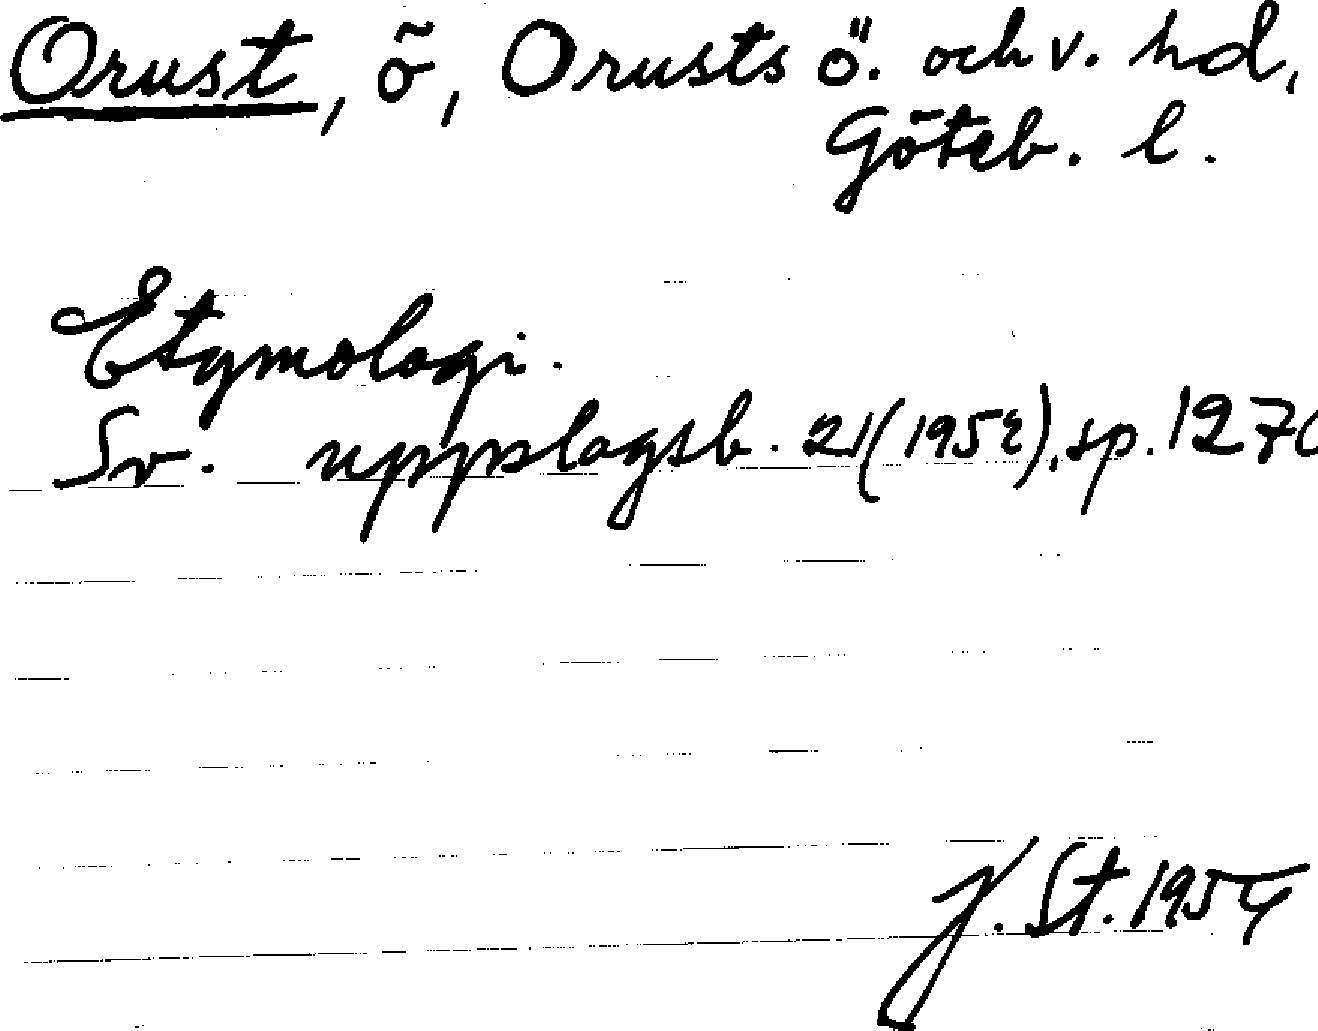 Orust, ö, Orusts ö. och v. hd,
Göteb. l.
Etymologi.
Sv. uppslagsb. 21 (1952), sp. 1270
J. St. 1954